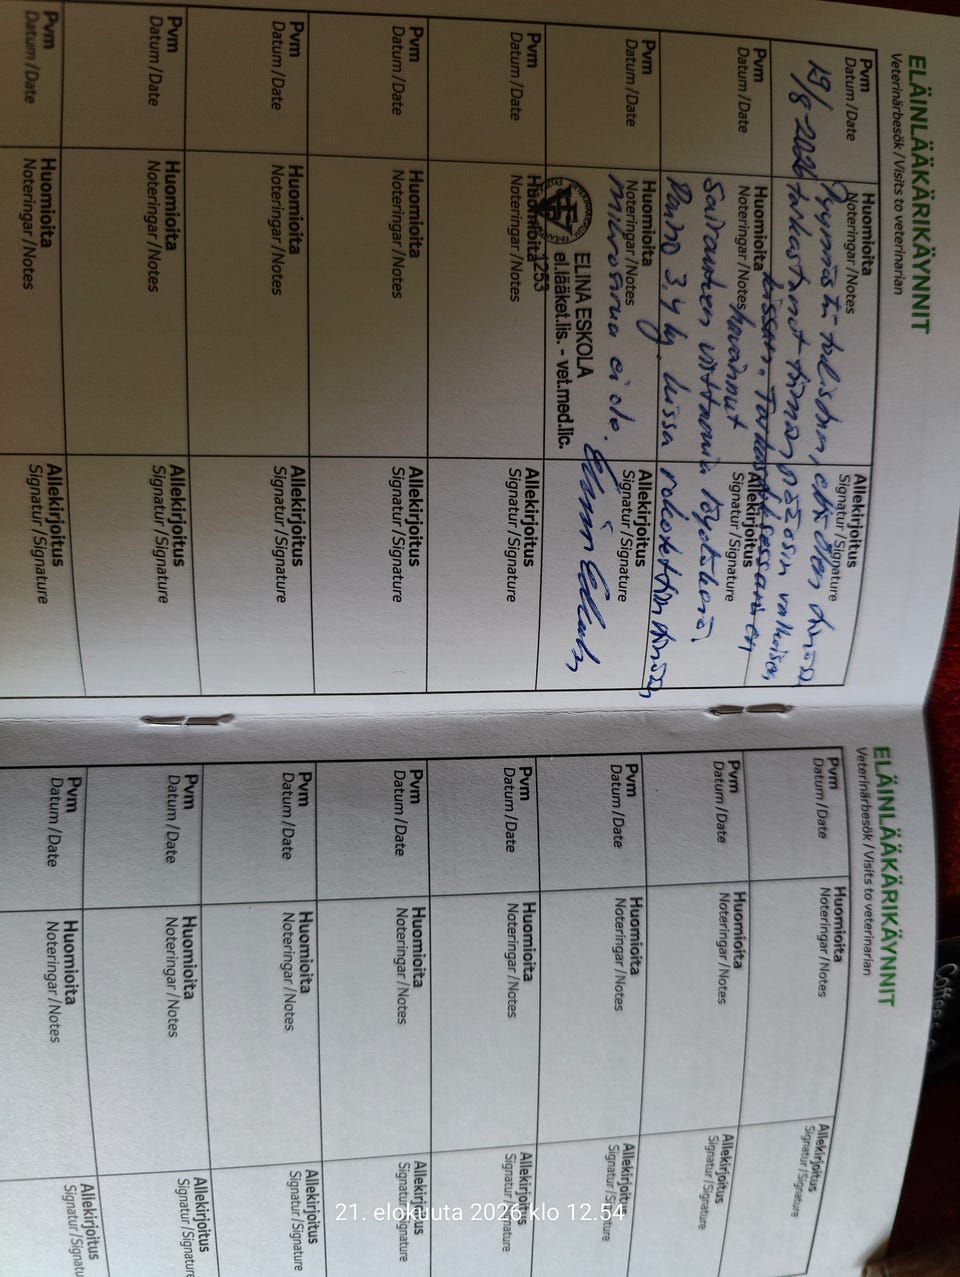 ELÄINLÄÄKÄRIKÄYNNIT
Veterinärbesök / Visits to veterinarian
Pvm
Datum / Date
Huomioita
Noteringar / Notes
Allekirjoitus
Signatur / Signature
19/8-2026
Pyynnöstä todistan, että olen tänään
tarkastanut tämän pääosin valkoisen
kissan. Tarkastuksessani en
Pvm
Datum / Date
Huomioita
Noteringar / Notes
Allekirjoitus
Signatur / Signature
havainnut
sairauteen viittaavia löydöksiä,
Paino 3,4 kg. kissa rokotettiin tänään,
Pvm
Datum / Date
Huomioita
Noteringar / Notes
Allekirjoitus
Signatur / Signature
mikrosirua ei ole.
ELINA ESKOLA
el.lääket.lis. - vet.med.lic.
1253
Pvm
Datum / Date
Huomioita
Noteringar / Notes
Allekirjoitus
Signatur / Signature
Pvm
Datum / Date
Huomioita
Noteringar / Notes
Allekirjoitus
Signatur / Signature
Pvm
Datum / Date
Huomioita
Noteringar / Notes
Allekirjoitus
Signatur / Signature
Pvm
Datum / Date
Huomioita
Noteringar / Notes
Allekirjoitus
Signatur / Signature
Pvm
Datum / Date
Huomioita
Noteringar / Notes
Allekirjoitus
Signatur / Signature
ELÄINLÄÄKÄRIKÄYNNIT
Veterinärbesök / Visits to veterinarian
Pvm
Datum / Date
Huomioita
Noteringar / Notes
Allekirjoitus
Signatur / Signature
Pvm
Datum / Date
Huomioita
Noteringar / Notes
Allekirjoitus
Signatur / Signature
Pvm
Datum / Date
Huomioita
Noteringar / Notes
Allekirjoitus
Signatur / Signature
Pvm
Datum / Date
Huomioita
Noteringar / Notes
Allekirjoitus
Signatur / Signature
Pvm
Datum / Date
Huomioita
Noteringar / Notes
Allekirjoitus
Signatur / Signature
Pvm
Datum / Date
Huomioita
Noteringar / Notes
Allekirjoitus
Signatur / Signature
Pvm
Datum / Date
Huomioita
Noteringar / Notes
Allekirjoitus
Signatur / Signature
Pvm
Datum / Date
Huomioita
Noteringar / Notes
Allekirjoitus
Signatur / Signatur
21. elokuuta 2026 klo 12.54